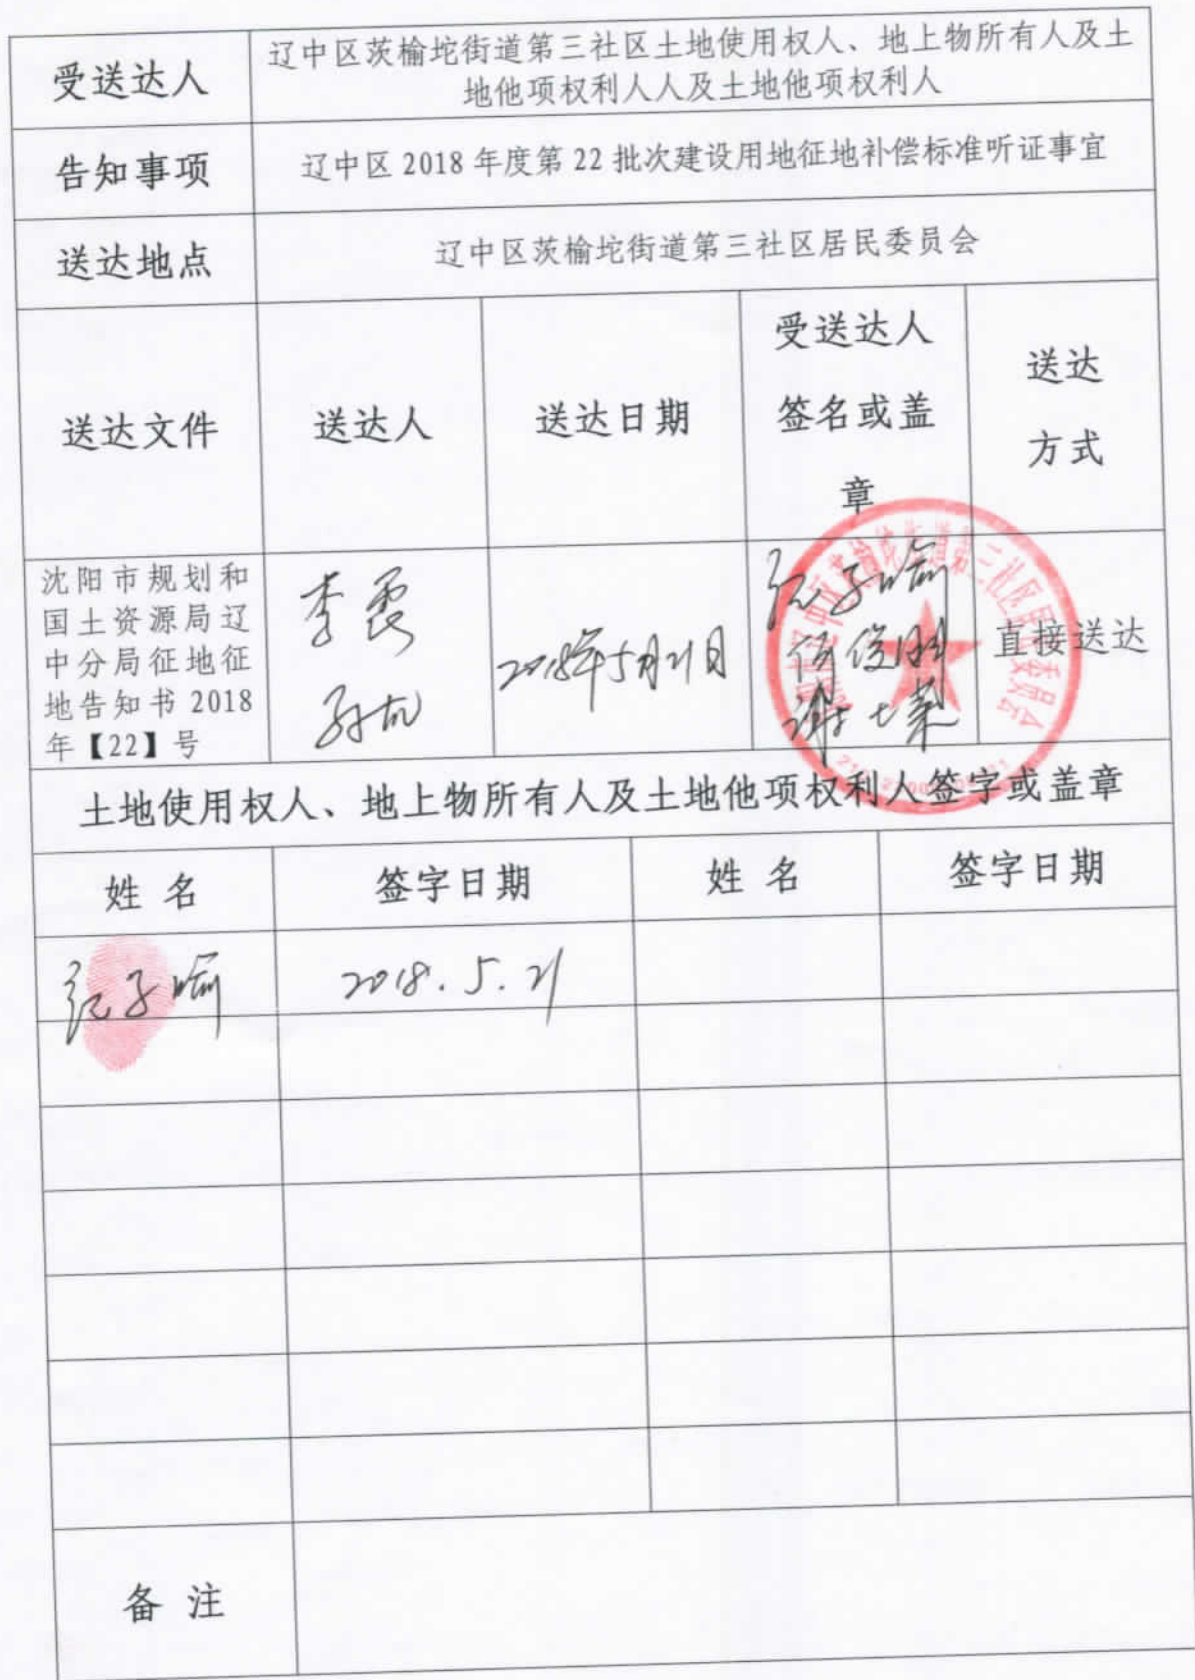 受送达人
辽中区茨榆坨街道第三社区土地使用权人、地上物所有人及土
地他项权利人人及土地他项权利人
告知事项
辽中区 2018 年度第 22 批次建设用地征地补偿标准听证事宜
送达地点
辽中区茨榆坨街道第三社区居民委员会
送达文件
送达人
送达日期
受送达人
签名或盖
章
送达
方式
沈阳市规划和
国土资源局辽
中分局征地征
地告知书 2018
年【22】号
李霞
2018年5月21日
直接送达
土地使用权人、地上物所有人及土地他项权利人签字或盖章
姓 名
签字日期
姓 名
签字日期
2018.5.21
备 注